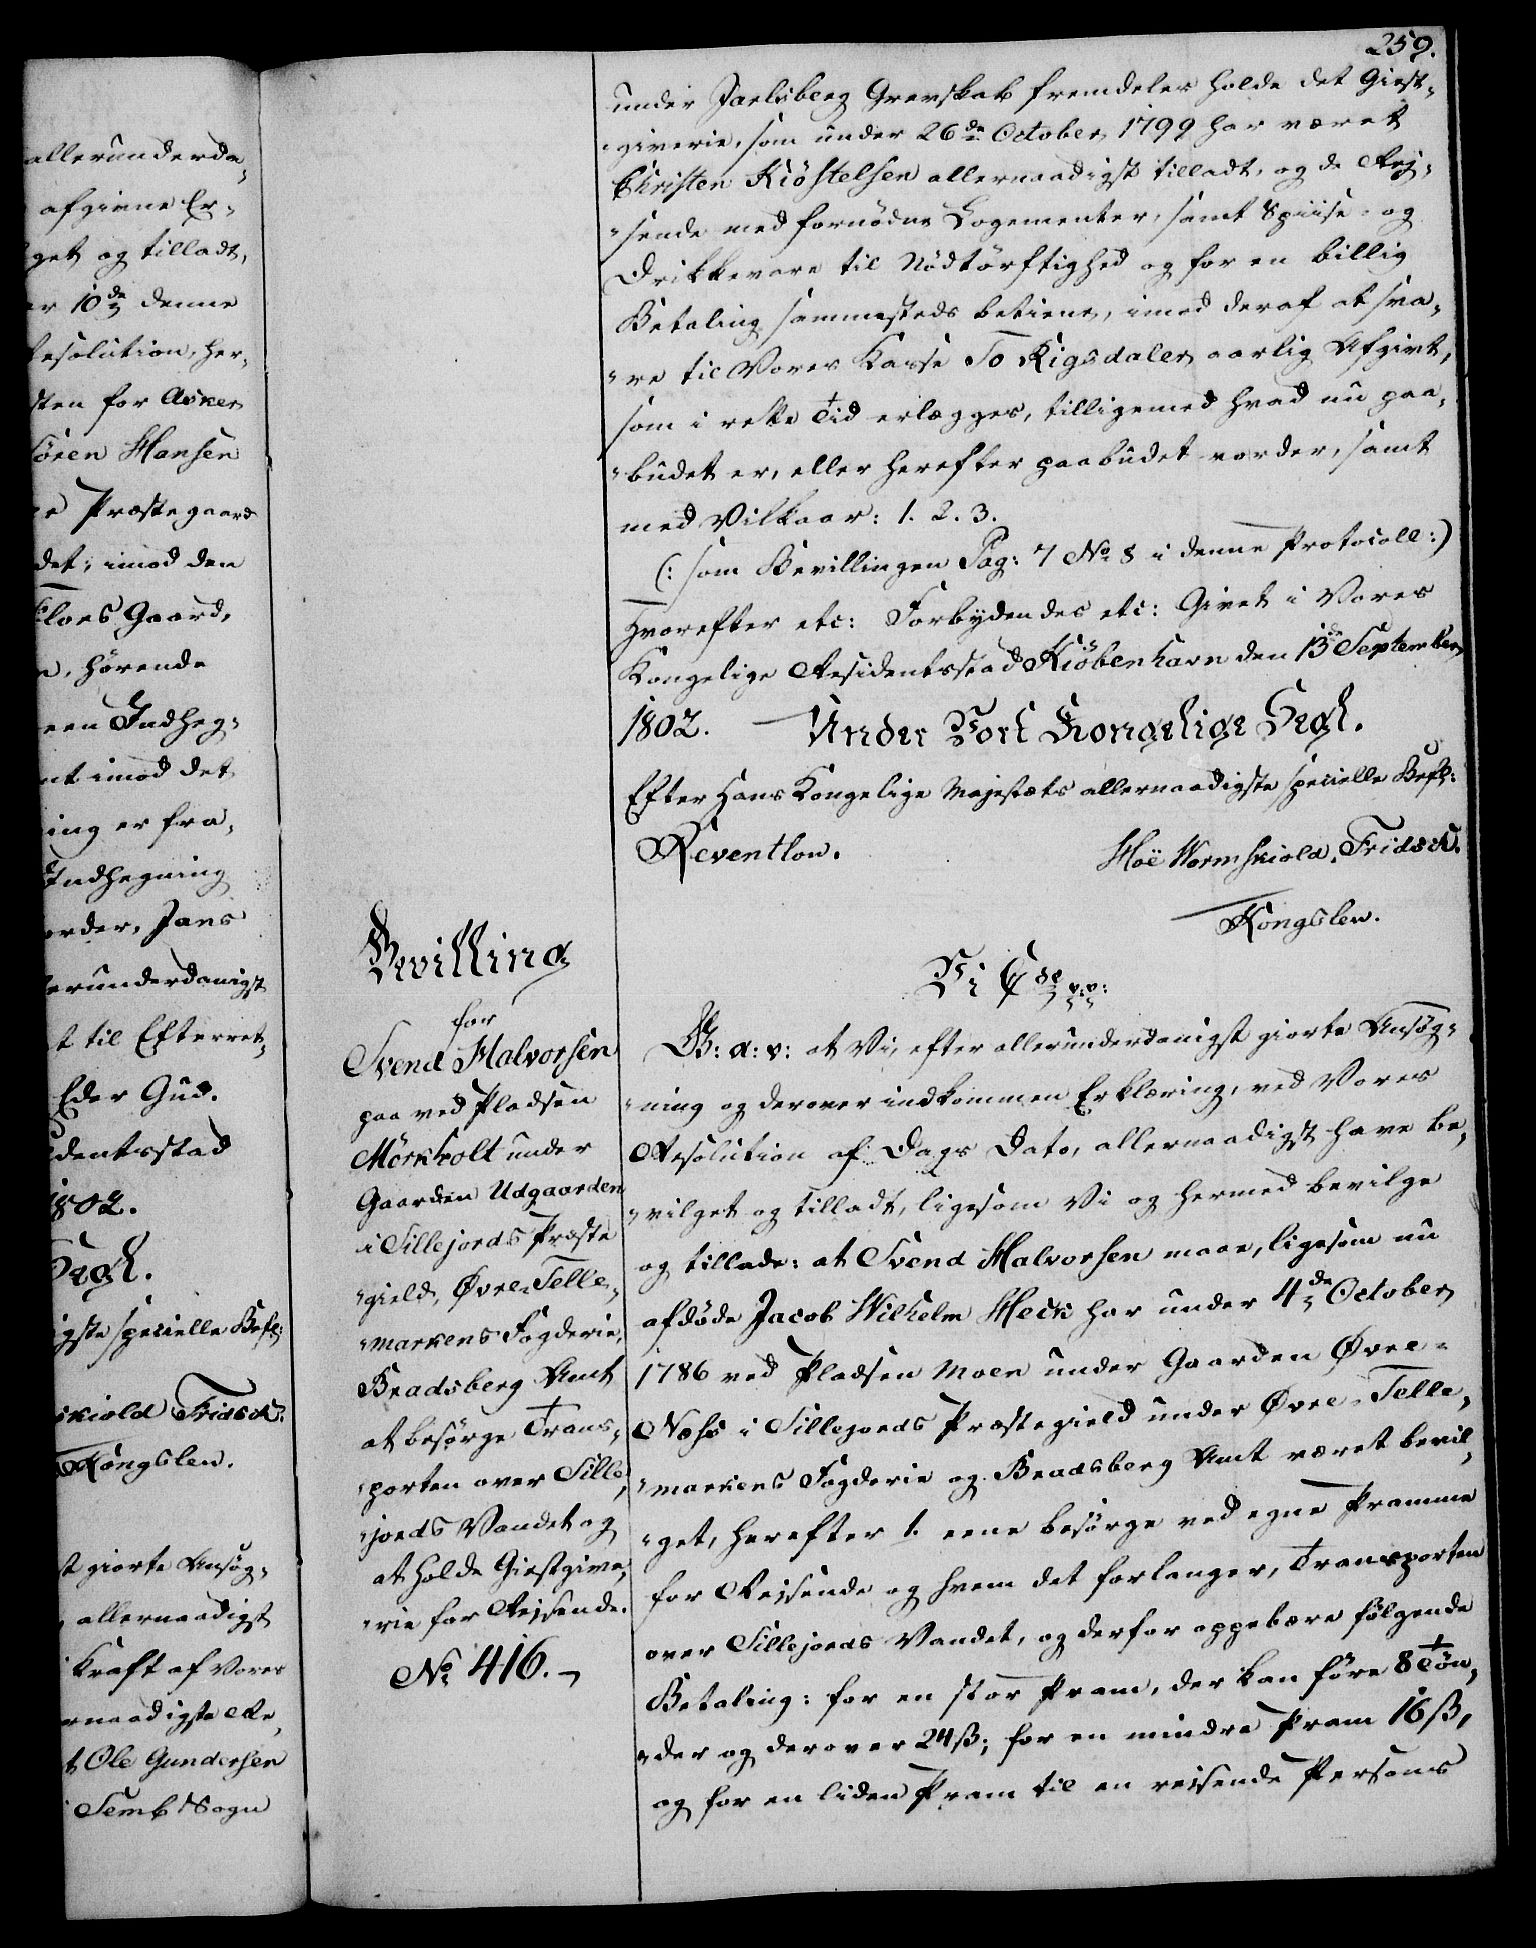 259.
under Jarlsberg Grevskab fremdeles holde det Giest-
giverie, som under 26de October 1799 har været
Christen Kiöstelsen allernaadigst tilladt, og de Rej-
sende med fornödne Logementer, samt Spiise- og
Drikkevare til Nödtörftighed og for en billig
Betaling sammesteds betiene, imod deraf at sva-
re til Vores Kasse To Rigsdaler aarlig Afgivt,
som i rette Tid erlægges, tilligemed hvad nu paa-
budet er, eller herefter paabudet vorder, samt
med Vilkaar: 1. 2. 3.
(: som Bevillingen Pag: 7 No 8 i denne Protocoll:)
Hvorefter etc: Forbydendes etc: Givet i Vores
Kongelige Residentsstad Kiöbenhavn den 13de September
1802. Under Vort Kongelige Segl.
Efter Hans Kongelige Majestæts allernaadigste specielle Befh:
Reventlow.
Moe Wormskiold. Fridsch.
Kongslew.
Bevilling
for
Svend Halvorsen
paa ved Pladsen
Mörkholt under
Gaarden Udgaarden
i Sillejords Præste
gield, Øvre Telle-
markens Fogderie,
Bradsberg Amt
at besörge Trans-
porten over Sille-
jords Vandet og
at holde Giestgive-
rie for Rejsende.
No 416.
Vi C de v:v:
G: a: v: at Vi, efter allerunderdanigst giorte Ansøg-
ning og derover indkommen Erklæring, ved Vores
Resolution af Dags Dato, allernaadigst have be-
vilget og tilladt, ligesom Vi og hermed bevilge
og tillade: at Svend Halvorsen maae, ligesom nu
afdöde Jacob Wilhelm Heck har under 4de October
1786 ved Pladsen Moen under Gaarden Øvre-
Næss i Sillejords Præstegield under Øvre-Telle-
markens Fogderie og Bradsberg Amt været bevil-
get, herefter 1. eene besörge ved egne Pramme
for Reisende og hvem det forlanger, Transporten
over Sillejords Vandet, og derfor oppebære følgende
Betaling: for en stor Pram, der kan före 8 Tön-
der og derover 24 ß; for en mindre Pram 16 ß,
og for en liden Pram til en reisende Persons
allerunderda-
afgivne Er-
get og tilladt,
er 10de denne
Resolution, her-
sten for Asker
Sören Hansen
ge Præstegaard
det; imod den
Floes Gaard,
n, hörende
een Indheg-
nt imod det
ing er fra-
Indhegning
order, Jans
lerunderdanigst
t til Efterret-
Eder Gud.
identsstad
1802.
Segl.
igste specielle Befh:
skiold Fridsch.
Kongslew.
st giorte Ansøg-
allernaadigst
Kraft af Vores
ernaadigste Re-
t Ole Gundersen
i Semb Sogn